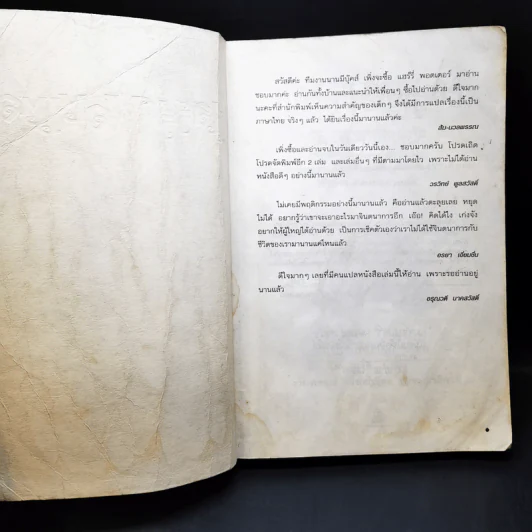 สวัสดีค่ะ ทีมงานนานมีบุ๊คส์ เพิ่งจะซื้อ แฮร์รี่ พอตเตอร์ มาอ่าน
ชอบมากค่ะ อ่านกันทั้งบ้านและแนะนำให้เพื่อนๆ ซื้อไปอ่านด้วย ดีใจมาก
นะคะที่สำนักพิมพ์เห็นความสำคัญของเด็กๆ จึงได้มีการแปลเรื่องนี้เป็น
ภาษาไทย จริงๆ แล้ว ได้ยินเรื่องนี้มานานแล้วค่ะ
ส้ม-นวลพรรณ
เพิ่งซื้อและอ่านจบในวันเดียววันนี้เอง... ชอบมากครับ โปรดเถิด
โปรดจัดพิมพ์อีก 2 เล่ม และเล่มอื่นๆ ที่มีตามมาโดยไว เพราะไม่ได้อ่าน
หนังสือดีๆ อย่างนี้มานานแล้ว
วรวิทย์ พูลสวัสดิ์
ไม่เคยมีพฤติกรรมอย่างนี้มานานแล้ว คืออ่านแล้วตะลุยเลย หยุด
ไม่ได้ อยากรู้ว่าเขาจะเอาอะไรมาจินตนาการอีก เออ! คิดได้ไง เก่งจัง
อยากให้ผู้ใหญ่ได้อ่านด้วย เป็นการเช็คตัวเองว่าเราไม่ได้ใช้จินตนาการกับ
ชีวิตของเรามานานแค่ไหนแล้ว
อรษา เอี่ยมชื่น
ดีใจมากๆ เลยที่มีคนแปลหนังสือเล่มนี้ให้อ่าน เพราะรออ่านอยู่
นานแล้ว
อรุณวดี นาคสวัสดิ์